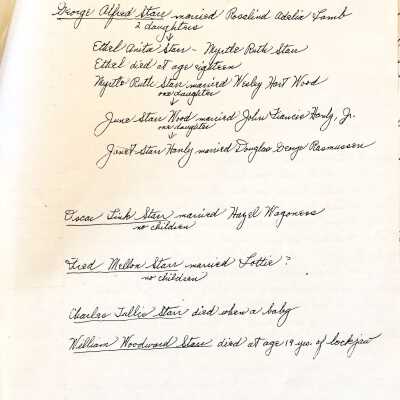 George Alfred Starr married Rosalind Adelia Lamb
2 daughters
Ethel Anita Starr - Myrtle Ruth Starr
Ethel died at age eighteen
Myrtle Ruth Starr married Wesley Hart Wood
one daughter
June Starr Wood married John Francis Hanly, Jr.
one daughter
Janet Starr Hanly married Douglas George Rasmussen
Oscar Fink Starr married Hazel Wagoness
no children
Fred Mellon Starr married Lottie ?
no children
Charles Tullis Starr died when a baby
William Woodward Starr died at age 19 yrs. of lockjaw